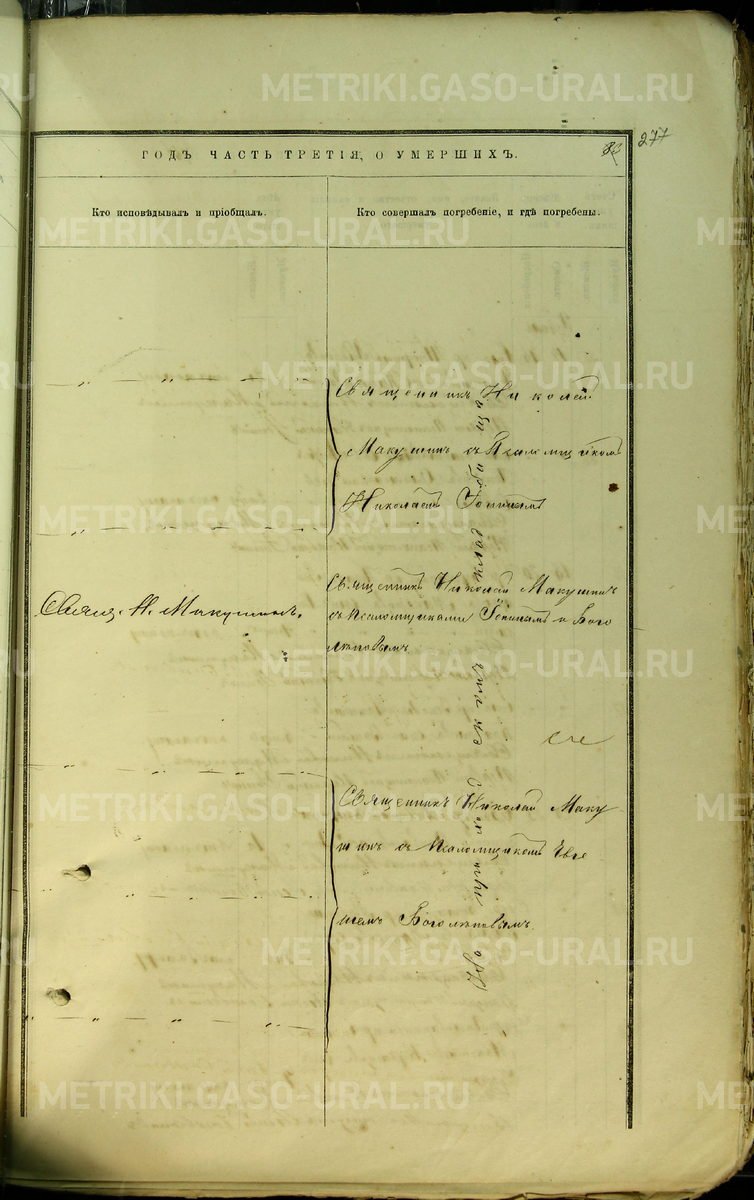 METRIKI.GASO-URAL.RU
277
ГОДЪ ЧАСТЬ ТРЕТІЯ, О УМЕРШИХЪ.
Кто исповѣдывалъ и пріобщалъ.
Кто совершалъ погребеніе, и гдѣ погребены.
Священникъ Николай
Макушинъ съ Псаломщикомъ
Николаемъ
Священ. Н. Макушинъ.
Священникъ Николай Макушинъ
съ Псаломщиками и Бого
лѣповымъ
Священникъ Николай Маку
шинъ съ Псаломщикомъ Евге
ніемъ Боголѣповымъ.
На приходскомъ кладбищѣ
METRIKI.GASO-URAL.RU
METRIKI.GASO-URAL.RU
METRIKI.GASO-URAL.RU
METRIKI.GASO-URAL.RU
METRIKI.GASO-URAL.RU
METRIKI.GASO-URAL.RU
METRIKI.GASO-URAL.RU